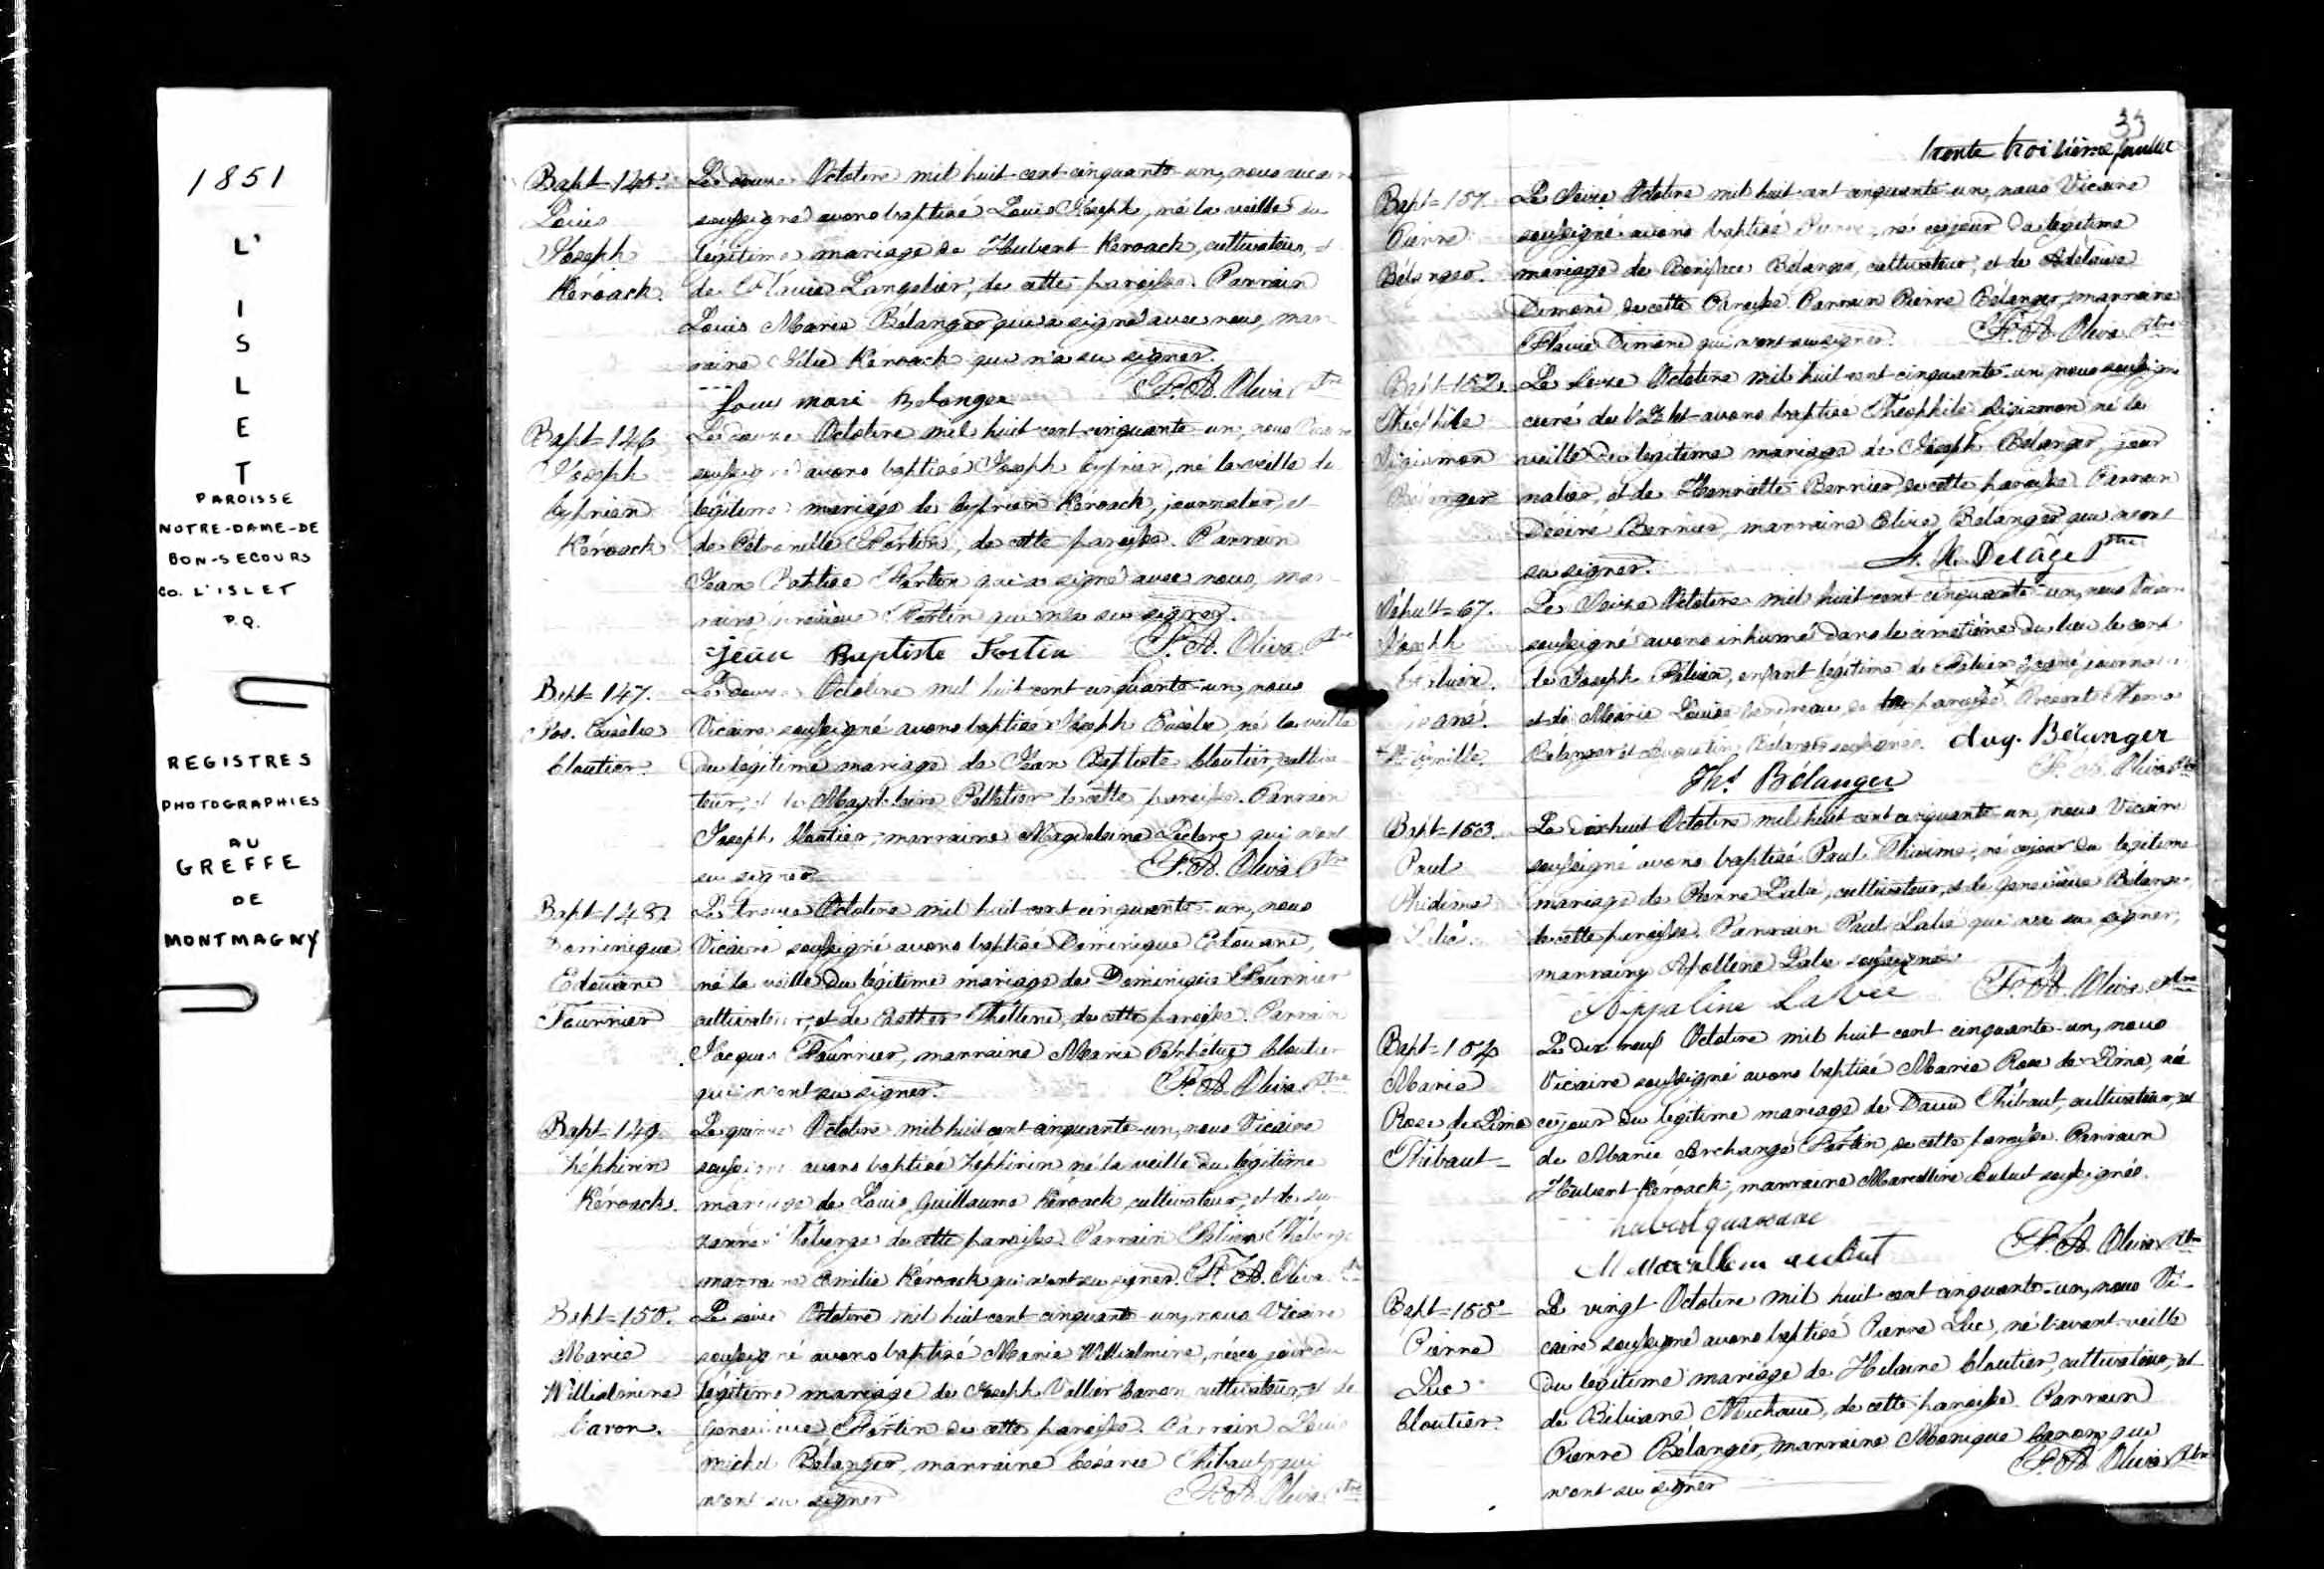 1851
L'
I
S
L
E
T
PAROISSE
NOTRE-DAME-DE
BON-SECOURS
CO. L'ISLET
P.Q.
REGISTRES
PHOTOGRAPHIES
AU
GREFFE
DE
MONTMAGNY
Bapt = 145.
Louis
Joseph
Kéroack.
Le douze Octobre mil huit cent cinquante-un, nous
soussigné avons baptisé Louis Joseph, né la veille du
légitime mariage de Hubert Keroack, cultivateur, et
de Flavie Langelier, de cette paroisse. Parrain
Louis Marie Bélanger qui a signé avec nous, mar-
raine Kéroack qui n'a su signer.
Louis mari Belanger F.A. Oliva Ptre
Bapt = 146
Joseph
Cyprien
Keroack
Le douze Octobre mil huit cent cinquante-un, nous
soussigné avons baptisé Joseph Cyprien, né la veille du
légitime mariage de Cyprien Kéroack, journalier, et
de Pétronille Fortin, de cette paroisse. Parrain
Jean Baptiste Fortin qui a signé avec nous, mar-
raine Fortin qui n'a su signer.
jean Baptiste Fortin F.A. Oliva Ptre
Bapt = 147.
Jos. Eusèbe
Cloutier.
Le douze Octobre mil huit cent cinquante-un, nous
Vicaire soussigné avons baptisé Joseph Eusèbe, né la veille
du légitime mariage de Jean Baptiste Cloutier, cultiva-
teur, et de Magdeleine Pelletier de cette paroisse. Parrain
Joseph Cloutier, marraine Magdeleine Leclerc qui n'ont
su signer F.A. Oliva Ptre
Bapt = 148
Dominique
Edouard
Fournier
Le treize Octobre mil huit cent cinquante-un, nous
Vicaire soussigné avons baptisé Dominique Edouard,
né la veille du légitime mariage de Dominique Fournier
cultivateur, et de Esther de cette paroisse. Parrain
Jacques Fournier, marraine Marie Perpétue Cloutier
qui n'ont su signer. F.A. Oliva Ptre
Bapt = 149
Zéphirin
Kéroack.
Le quinze Octobre mil huit cent cinquante-un, nous Vicaire
soussigné avons baptisé Zéphirin né la veille du légitime
mariage de Louis Guillaume Kéroack, cultivateur, et de Su-
zanne Théberge de cette paroisse. Parrain Théberge
marraine Emilie Kéroack qui n'ont su signer F.A. Oliva Ptre
Bapt = 150.
Marie
Willielmine
Caron.
Le seize Octobre mil huit cent cinquante-un, nous Vicaire
soussigné avons baptisé Marie Willielmine, née ce jour du
légitime mariage de Joseph Vallier Caron cultivateur, et de
Geneviève Fortin de cette paroisse. Parrain Louis
Michel Bélanger, marraine Césarée Thibault qui
n'ont su signer F.A. Oliva Ptre
33
trente troisième feuillet
Bapt = 151.
Pierre
Bélanger.
Le Seize Octobre mil huit cent cinquante-un, nous Vicaire
soussigné avons baptisé Pierre, né ce jour du légitime
mariage de Boniface Bélanger, cultivateur, et de Adelaïde
de cette Paroisse. Parrain Pierre Bélanger, marraine
Flavie qui n'ont su signer. F.A. Oliva Ptre
Bapt = 152.
Théophile
Sigismon
Bélanger
Le Seize Octobre mil huit cent cinquante-un, nous soussigné
curé de l'Islet avons baptisé Théophile Sigismon né la
veille du légitime mariage de Joseph Bélanger, jour
nalier, et de Henriette Bernier, de cette paroisse. Parrain
Désiré Bernier, marraine Elise Bélanger qui n'ont
su signer. Delâge Ptre
Sépult = 67.
Joseph
Le Seize Octobre mil huit cent cinquante-un, nous Vicaire
soussigné avons inhumé dans le cimetière du lieu le corps
de Joseph enfant légitime de
et de Marie Louise de paroisse. Présent Thomas
Bélanger et Augustin Bélanger soussignés. Aug. Bélanger
Ths Bélanger F.A. Oliva Ptre
Bapt = 153.
Paul
Le dix huit Octobre mil huit cent cinquante-un, nous Vicaire
soussigné avons baptisé Paul né ce jour du légitime
mariage de Pierre cultivateur, et de Geneviève Bélanger,
de cette paroisse. Parrain Paul qui n'a su signer,
marraine Apolline soussignée
Appaline F.A. Oliva Ptre
Bapt = 154
Marie
Rose de Lima
Thibaut
Le dix neuf Octobre mil huit cent cinquante-un, nous
Vicaire soussigné avons baptisé Marie Rose de Lima, née
ce jour du légitime mariage de David Thibaut, cultivateur, et
de Marie Archange Fortin, de cette paroisse. Parrain
Hubert Kéroack, marraine Marcelline Aubut soussignés.
F.A. Oliva Ptre
Bapt = 155
Pierre
Luc
Cloutier.
Le vingt Octobre mil huit cent cinquante-un, nous Vi-
caire soussigné avons baptisé Pierre Luc, né l'avant-veille
du légitime mariage de Hilaire Cloutier, cultivateur, et
de Bibiane Michaud, de cette paroisse. Parrain
Pierre Bélanger, marraine Monique Caron qui
n'ont su signer F.A. Oliva Ptre